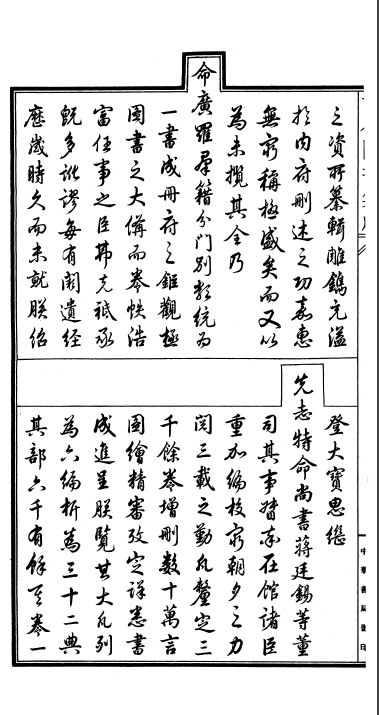 之資所纂輯雕鐫充溢
於內府刪述之功嘉惠
無窮稱極盛矣而又以
為未攬其全乃
命廣羅羣籍分門別類統為
一書成冊府之鉅觀極
圖書之大備而卷帙浩
富任事之臣弗克祗承
既多訛謬每有闕遺經
歷歲時久而未就朕紹
登大寶思繼
先志特命尚書蔣廷錫等董
司其事督率在館諸臣
重加編校窮朝夕之力
閱三載之勤凡釐定三
千餘卷增刪數十萬言
圖繪精審攷定詳悉書
成進呈朕覽其大凡列
為六編析為三十二典
其部六千有餘其卷一
中華書局影印